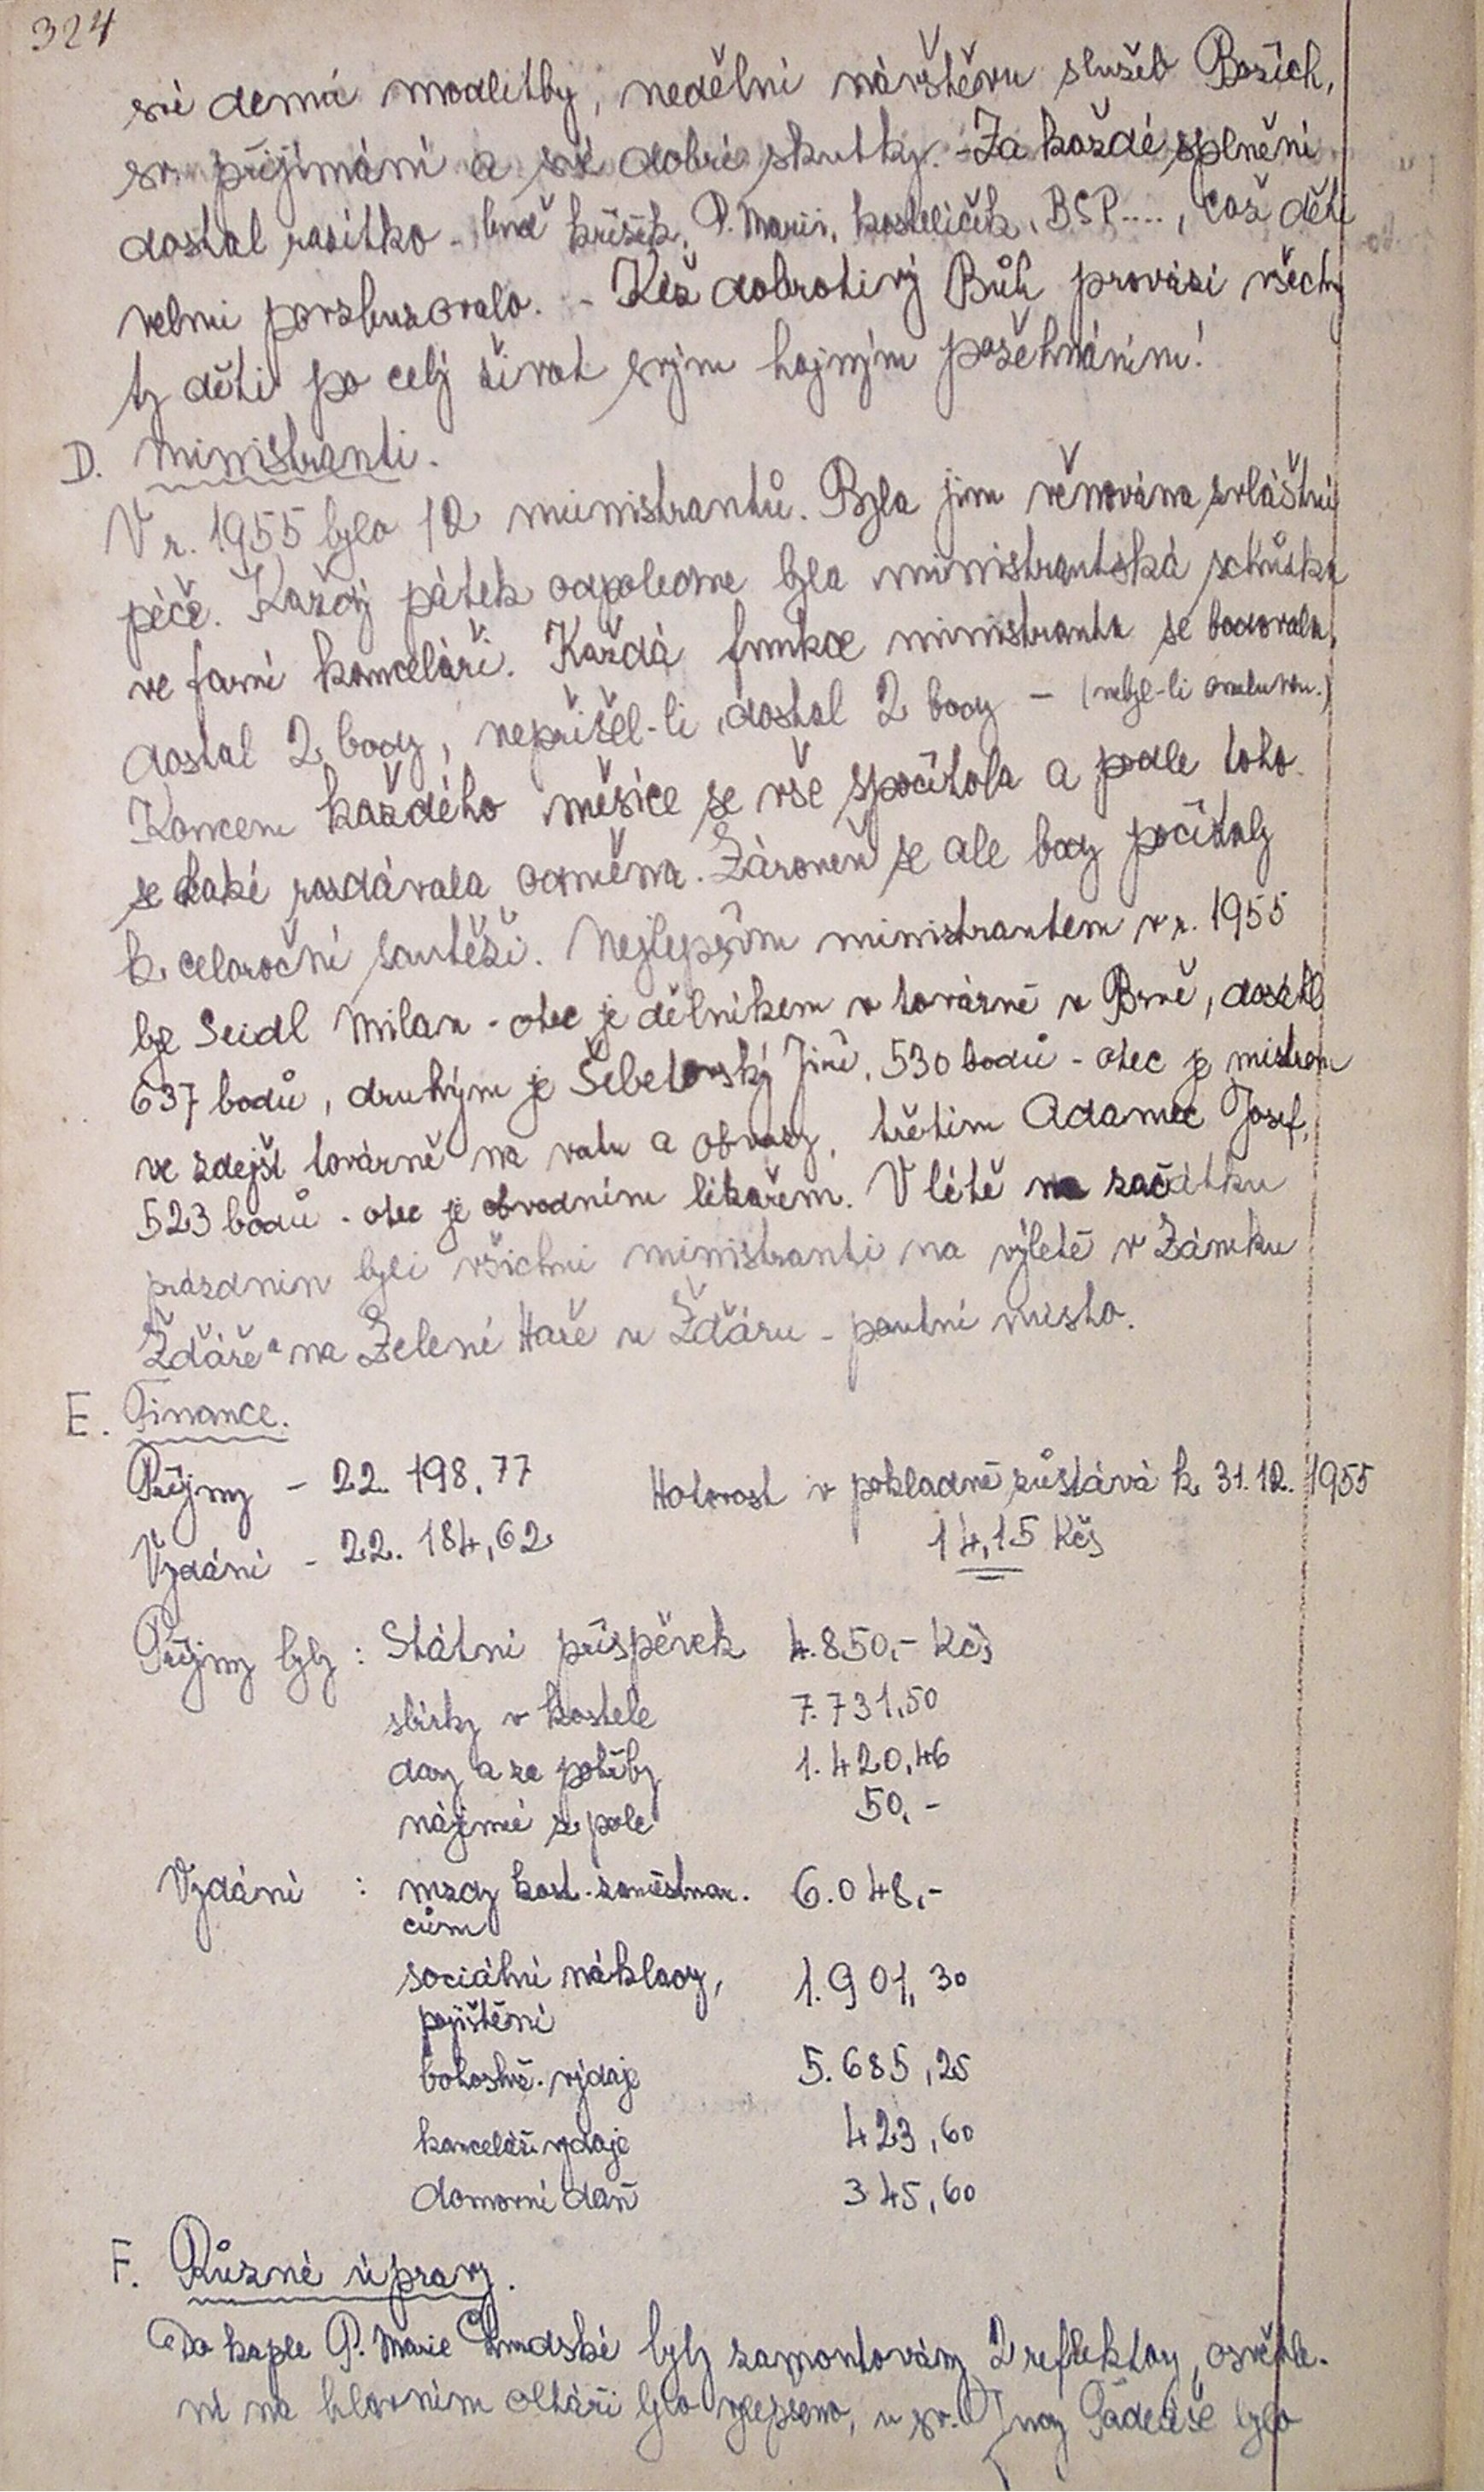 324
své denní modlitby, nedělní návštěvu služeb Božích,
sv. přijímání a své dobré skutky. - Za každé splnění
dostal razítko - buď křížek, P. Marii, kostelíček, BSP...., což děti
velmi povzbuzovalo. - Kéž dobrotivý Bůh provází všechny
ty děti po celý život svým hojným požehnáním!
D. Ministranti.
V r. 1955 bylo 12 ministrantů. Byla jim věnována zvláštní
péče. Každý pátek odpoledne byla ministrantská schůzka
ve farní kanceláři. Každá funkce ministranta se bodovala,
dostal 2 body, nepřišel-li, dostal 2 body - (nebyl-li omluven.)
Koncem každého měsíce se vše spočítala a podle toho
se také rozdávala odměna. Zároveň se ale body počítaly
k celoroční soutěži. Nejlepším ministrantem v r. 1955
byl Seidl Milan - otec je dělníkem v továrně v Brně, dosáhl
637 bodů, druhým je Šebetovský Jiří, 530 bodů - otec je mistrem
ve zdejší továrně na vatu a obvazy, třetím Adamec Josef,
523 bodů - otec je obvodním lékařem. V létě na začátku
prázdnin byli všichni ministranti na výletě v Zámku
Žďáře a na Zelené Hoře u Žďáru - poutní místo.
E. Finance.
Příjmy - 22. 198,77 Hotovost v pokladně zůstává k 31.12. 1955
Vydání - 22. 184,62 14,15 Kčs
Příjmy byly : Státní příspěvek 4.850,- Kčs
sbírky v kostele 7.731,50
dary a za pohřby 1.420,46
nájemné z pole 50,-
Vydání : mzdy kost. zaměstnan. 6.048,-
cům
sociální náklady, 1.901,30
pojištění
bohosluž. výdaje 5.685,25
kancelář. výdaje 423,60
domovní daň 345,60
F. Různé úpravy.
Do kaple P. Marie Lurdské byly zamontovány 2 reflektory, osvětle-
ní na hlavním oltáři bylo vylepšeno, u sv. Judy Tadeáše bylo